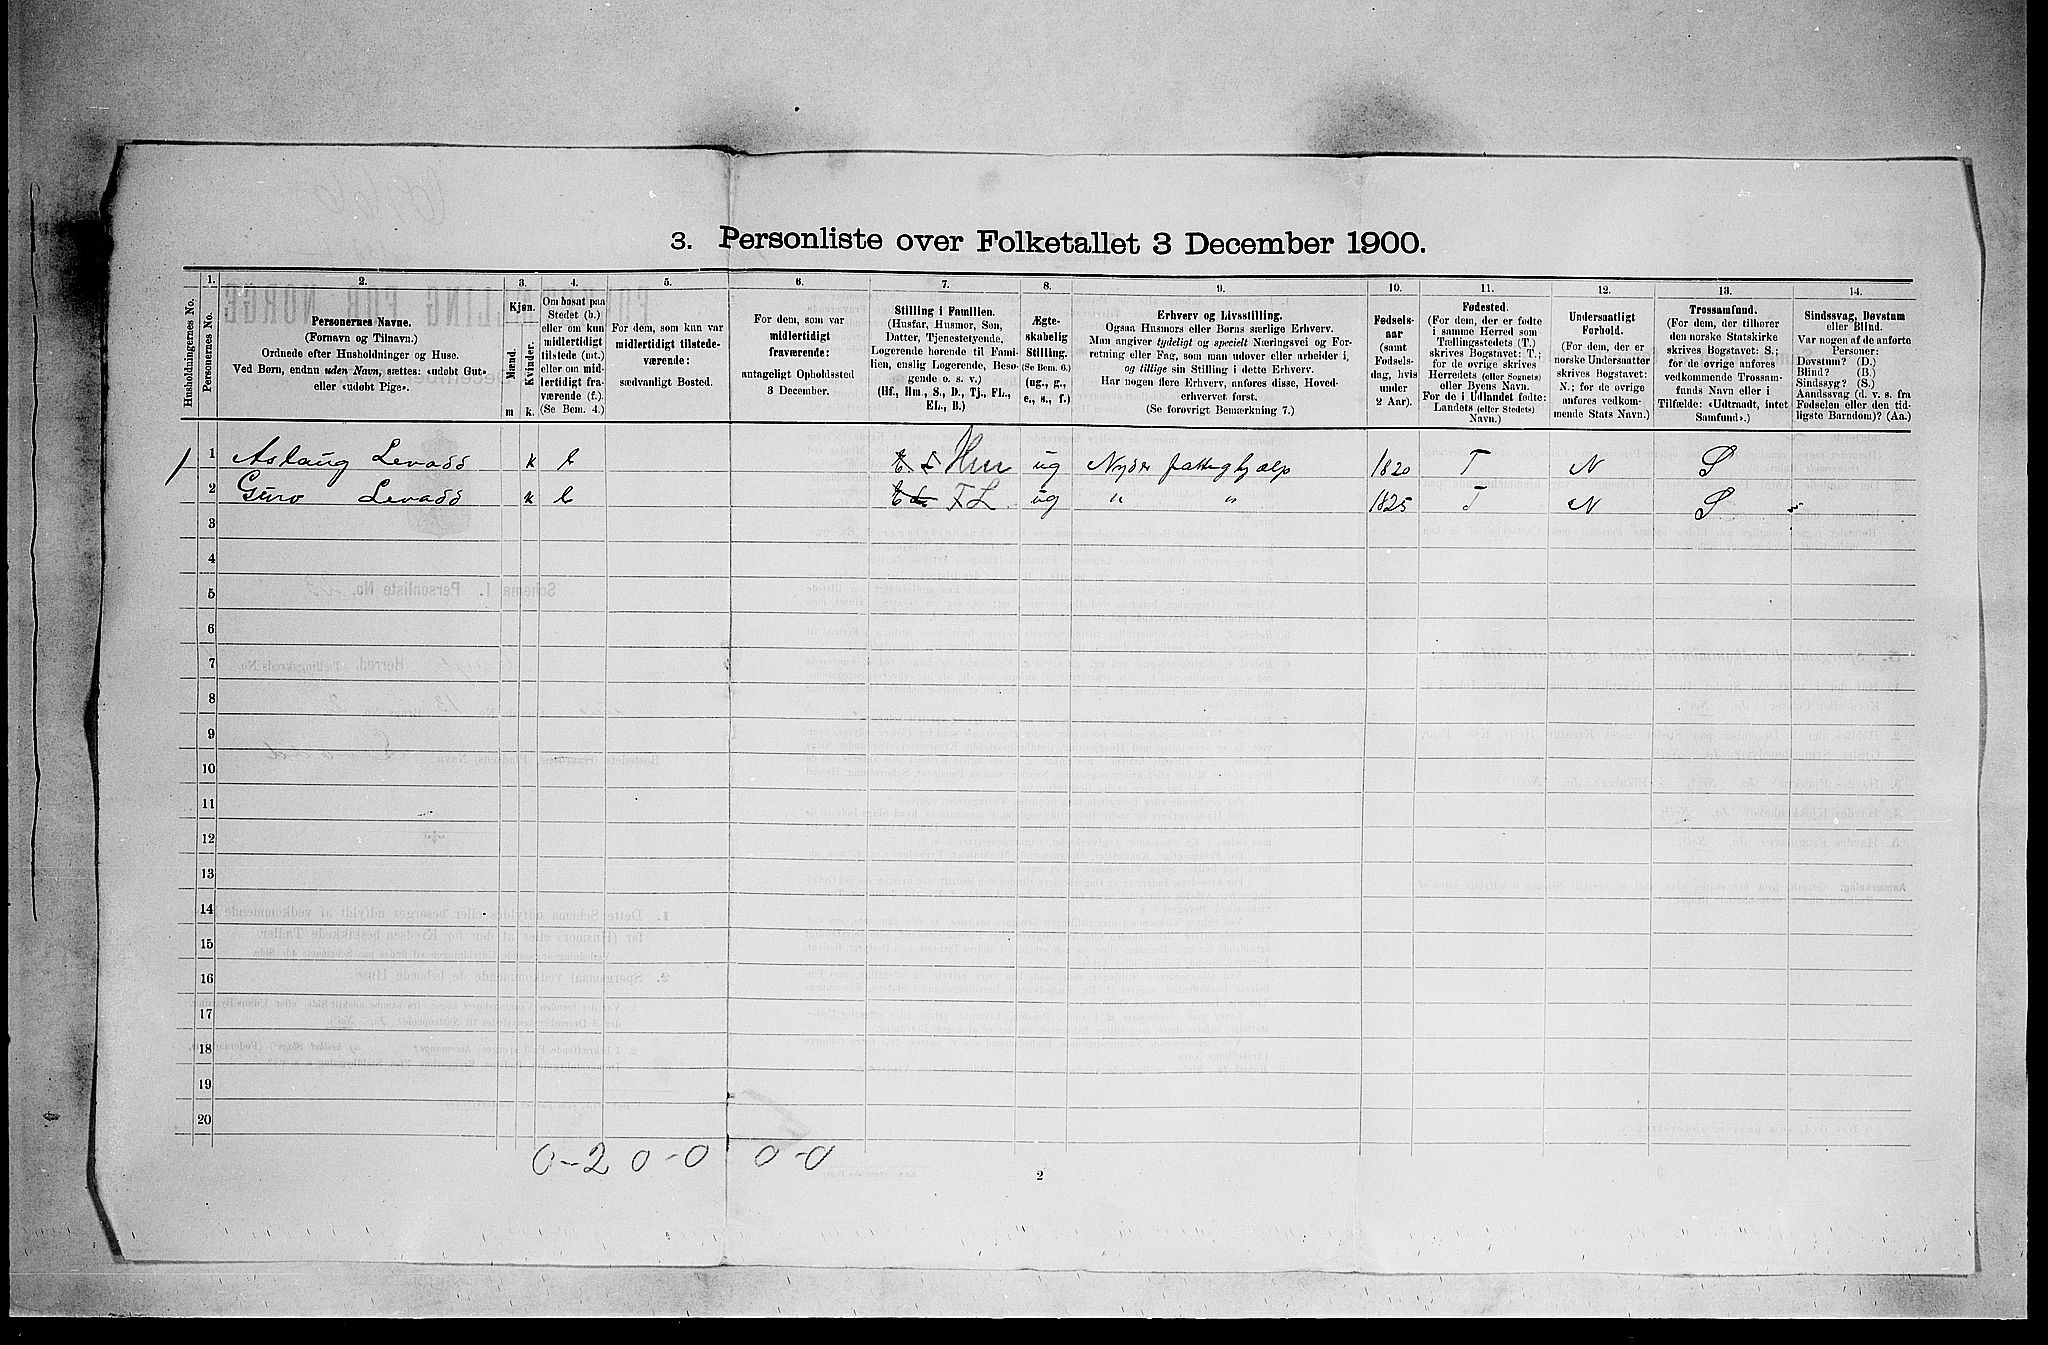 3. Personliste over Folketallet 3 December 1900.
1. 2. 3. 4. 5. 6. 7. 8. 9. 10. 11. 12. 13. 14.
Husholdningernes No.
Personernes No.
Personernes Navne.
(Fornavn og Tilnavn.)
Ordnede efter Husholdninger og Huse.
Ved Børn, endnu uden Navn, sættes: «udøbt Gut»
eller «udøbt Pige».
Kjøn.
Mænd.
Kvinder.
m k.
Om bosat paa
Stedet (b.)
eller om kun
midlertidigt
tilstede (mt.)
eller om mid-
lertidigt fra-
værende (f.).
(Se Bem. 4.)
For dem, som kun var
midlertidigt tilstede-
værende:
sædvanligt Bosted.
For dem, som var
midlertidigt
fraværende:
antageligt Opholdssted
3 December.
Stilling i Familien.
(Husfar, Husmor, Søn,
Datter, Tjenestetyende,
Logerende hørende til Fami-
lien, enslig Logerende, Besø-
gende o. s. v.)
(Hf., Hm., S., D., Tj., FL.,
EL., B.)
Ægte-
skabelig
Stilling.
(Se Bem. 6.)
(ug., g.,
e., s., f.)
Erhverv og Livsstilling.
Ogsaa Husmors eller Børns særlige Erhverv.
Man angiver tydeligt og specielt Næringsvei og For-
retning eller Fag, som man udøver eller arbeider i,
og tillige sin Stilling i dette Erhverv.
Har nogen flere Erhverv, anføres disse, Hoved-
erhvervet først.
(Se forøvrigt Bemærkning 7.)
Fødsels-
aar
(samt
Fødsels-
dag, hvis
under
2 Aar).
Fødested.
(For dem, der er fødte
i samme Herred som
Tællingsstedets (T.)
skrives Bogstavet: T.;
for de øvrige skrives
Herredets (eller Sognets)
eller Byens Navn.
For de i Udlandet fødte:
Landets (eller Stedets)
Navn.)
Undersaatligt
Forhold.
(For dem, der er
norske Undersaatter
skrives Bogstavet:
N.; for de øvrige
anføres vedkom-
mende Stats Navn.)
Trossamfund.
(For dem, der tilhører
den norske Statskirke
skrives Bogstavet: S.;
for de øvrige anføres
vedkommende Trossam-
funds Navn eller i
Tilfælde: «Udtraadt, intet
Samfund».)
Sindssvag, Døvstum
eller Blind.
Var nogen af de anførte
Personer:
Døvstum? (D.)
Blind? (B.)
Sindssyg? (S.)
Aandssvag (d. v. s. fra
Fødselen eller den tid-
ligste Barndom)? (Aa.)
1 1 Aslaug Levass k b Hm ug Nyder fattighjælp 1820 T N S
2 Guro Levass k b FL ug " " 1825 T N S
3
4
5
6
7
8
9
10
11
12
13
14
15
16
17
18
19
20
0-2 0-0 0-0
2